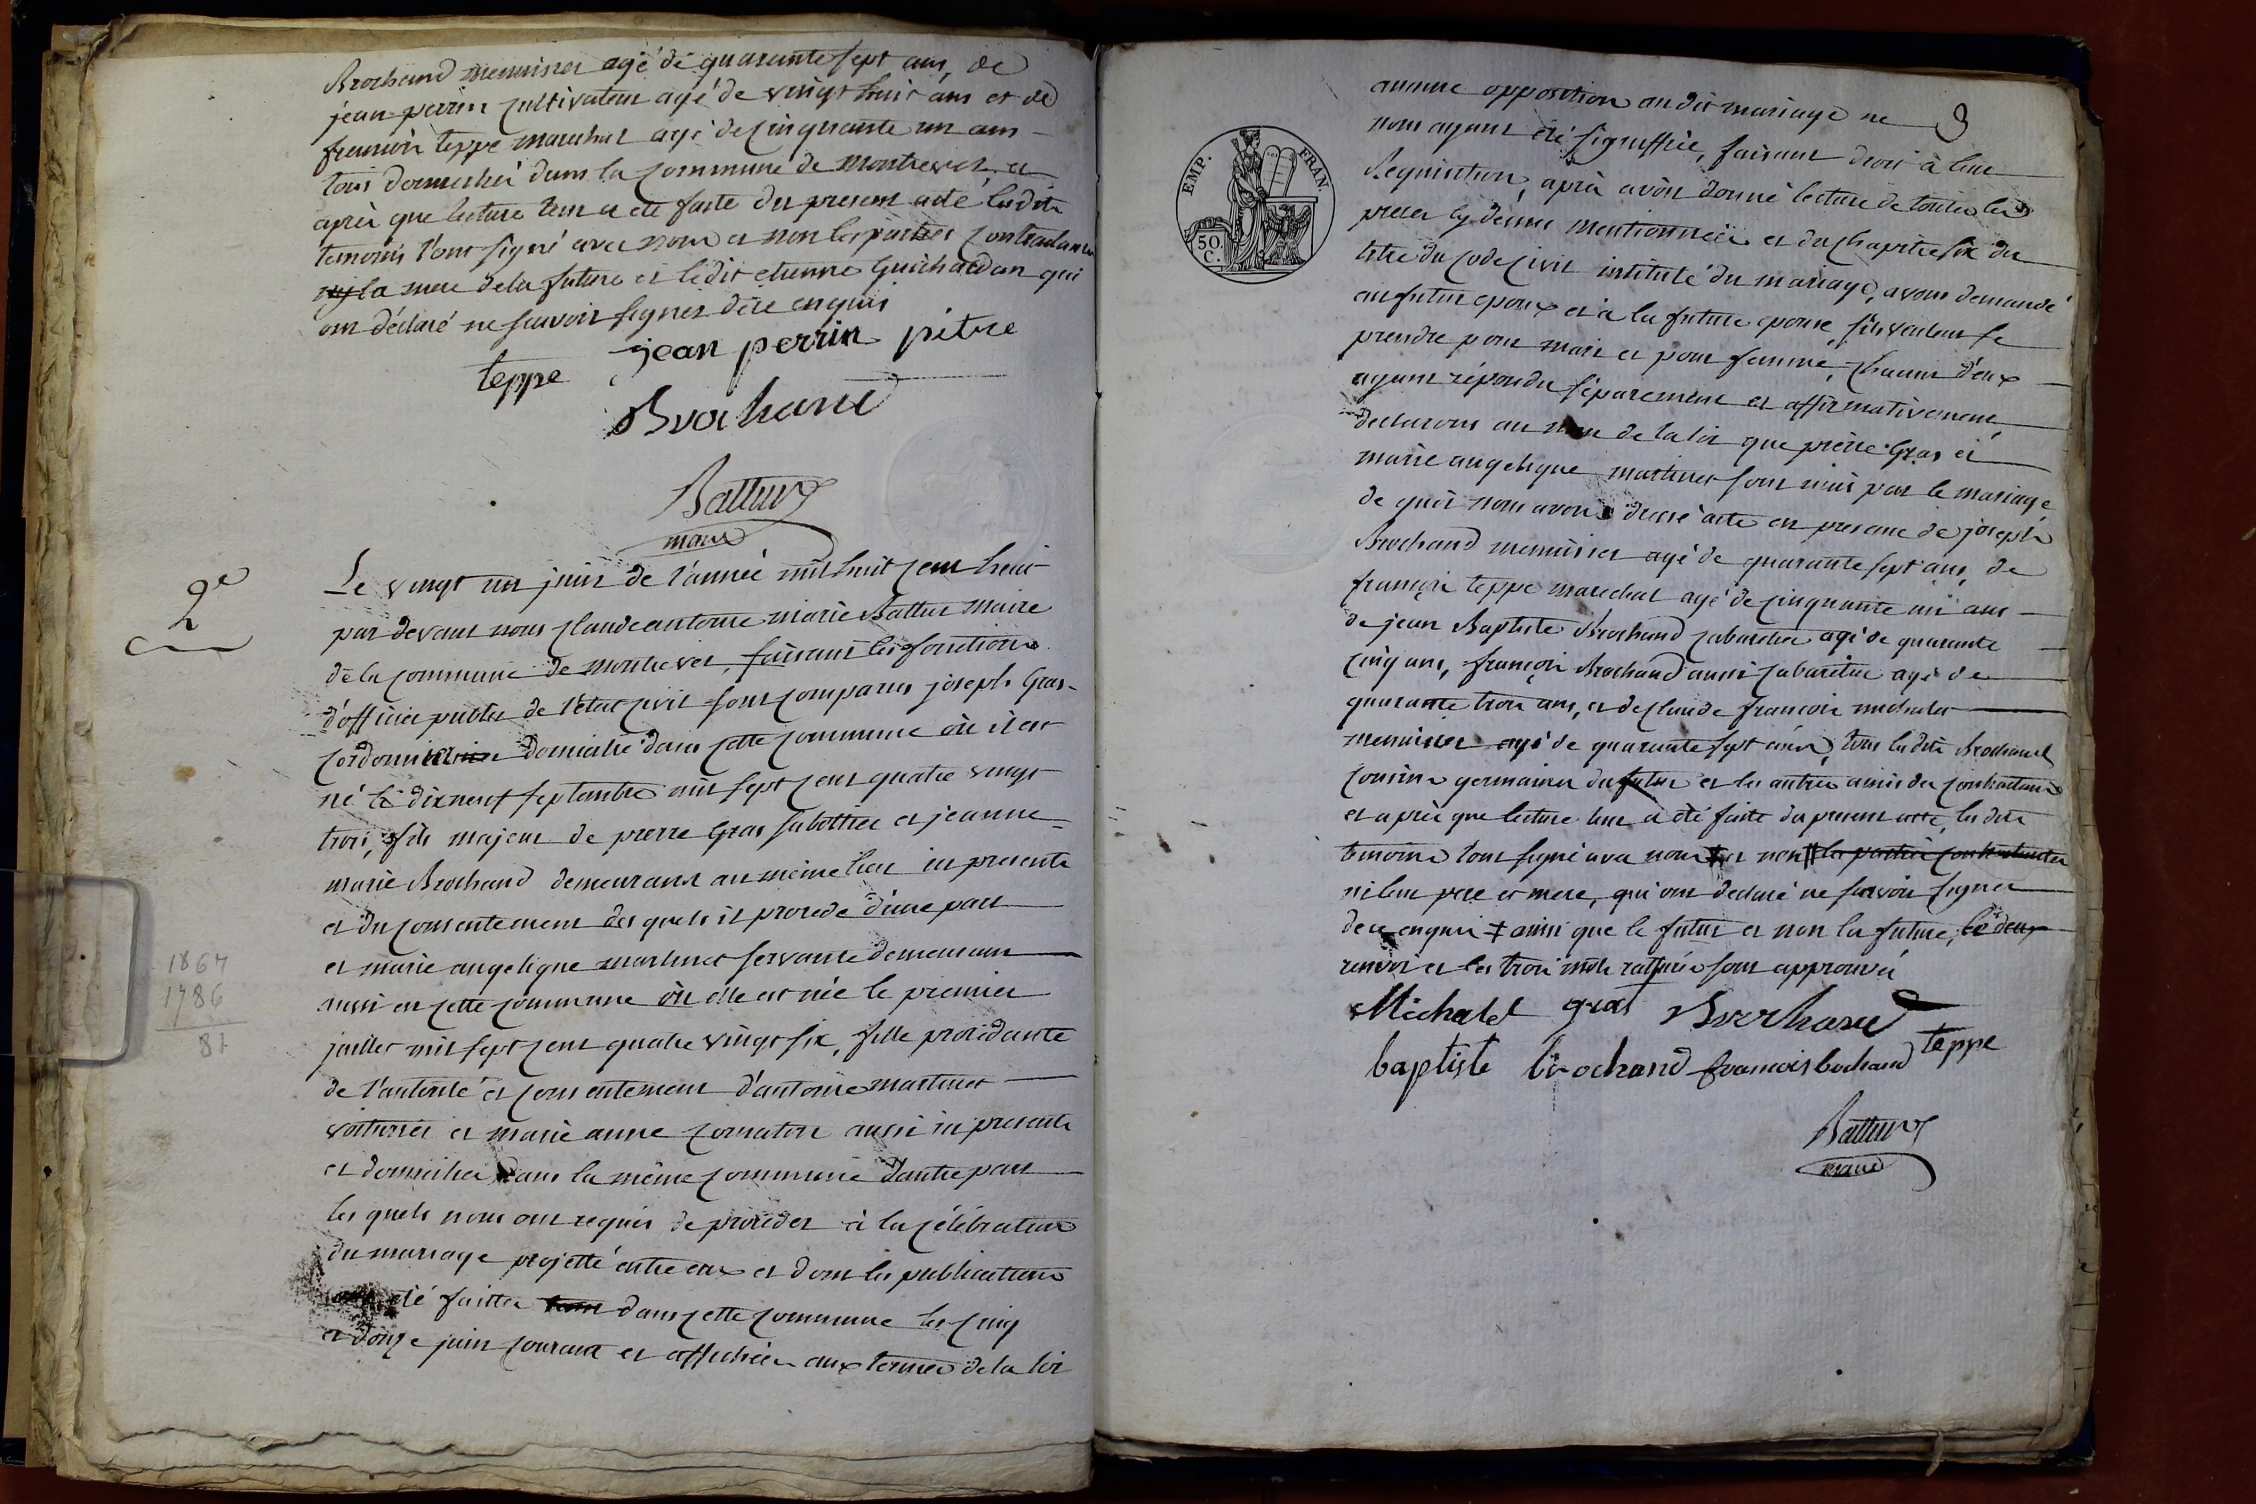 Brochand menuisier agé de quarante sept ans, de
jean perrin cultivateur agé de vingt huit ans et de
francois teppe marechal agé de cinquante un ans
tous domiciliés dans la commune de montrevel et
après que lecture leur a été faite du present acte lesdits
temoins l'ont signé avec nous et non les parties contractantes
ny la mere de la future et ledit etienne Guichardan qui
ont déclaré ne scavoir signer de ce enquis
teppe jean perrin pitre
Brochand
Battur
maire
2e
Le vingt un juin de l'année mil huit cent huit
par devant nous claude antoine marie Battur maire
de la commune de montrevel, faisant les fonctions
d'officier public de l'état civil sont comparus joseph Gras
cordonnier domicilié dans cette commune où il est
né le dixneuf septembre mil sept cent quatre vingt
trois, fils majeur de pierre Gras sabottier et jeanne
marie Brochand demeurant au même lieu ici presents
et du consentement des quels il procede d'une part
et marie angelique martinet servante demeurant
aussi en cette commune où elle est née le premier
juillet mil sept cent quatre vingt six, fille procédante
de l'autorité et consentement d'antoine martinet
voiturier et marie anne cornaton aussi ici presents
et domiciliés dans la même commune d'autre part
les quels nous ont requis de proceder à la célébration
du mariage projetté entre eux et dont les publications
ont été faittes dans cette commune les cinq
et douze juin courant et affichées aux termes de la loi
1867
1786
81
3
aucune opposition au dit mariage ne
nous ayant été signiffiée, faisant droit à leur
requisition, après avoir donné lecture de toutes les
pieces cy dessus mentionnées et du chapitre six du
titre du code civil intitulé du mariage, avons demandé
au futur epoux et à la future epouse s'ils veulent se
prendre pour mari et pour femme, chacun d'eux
ayant répondu séparement et affirmativement
declarons au nom de la loi que pierre Gras et
marie angelique martinet sont unis par le mariage
de quoi nous avons dressé acte en presence de joseph
Brochand menuisier agé de quarante sept ans, de
françois teppe marechal agé de cinquante un ans
de jean Baptiste Brochand cabaretier agé de quarante
cinq ans, françois Brochand aussi cabaretier agé de
quarante trois ans, et de claude francois michalet
menuisier agé de quarante sept ans, tous lesdits Brochand
cousins germains du futur et les autres amis des contractans
et après que lecture leur a été faite du present acte, les dits
temoins l'ont signé avec nous et non les parties contractantes
ni leur pere et mere, qui ont declaré ne scavoir signer
de ce enquis ‡ ainsi que le futur et non la future, les deux
renvois et les trois mots raturés sont approuvés
Michalet gras Brochand
baptiste brochand francois bochand teppe
Battur
maire
EMP. FRAN.
50. C.